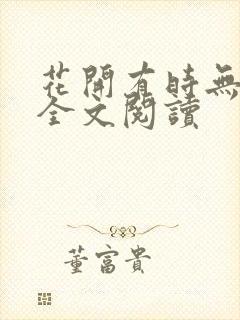 花開有時無
全文閱讀
董富貴